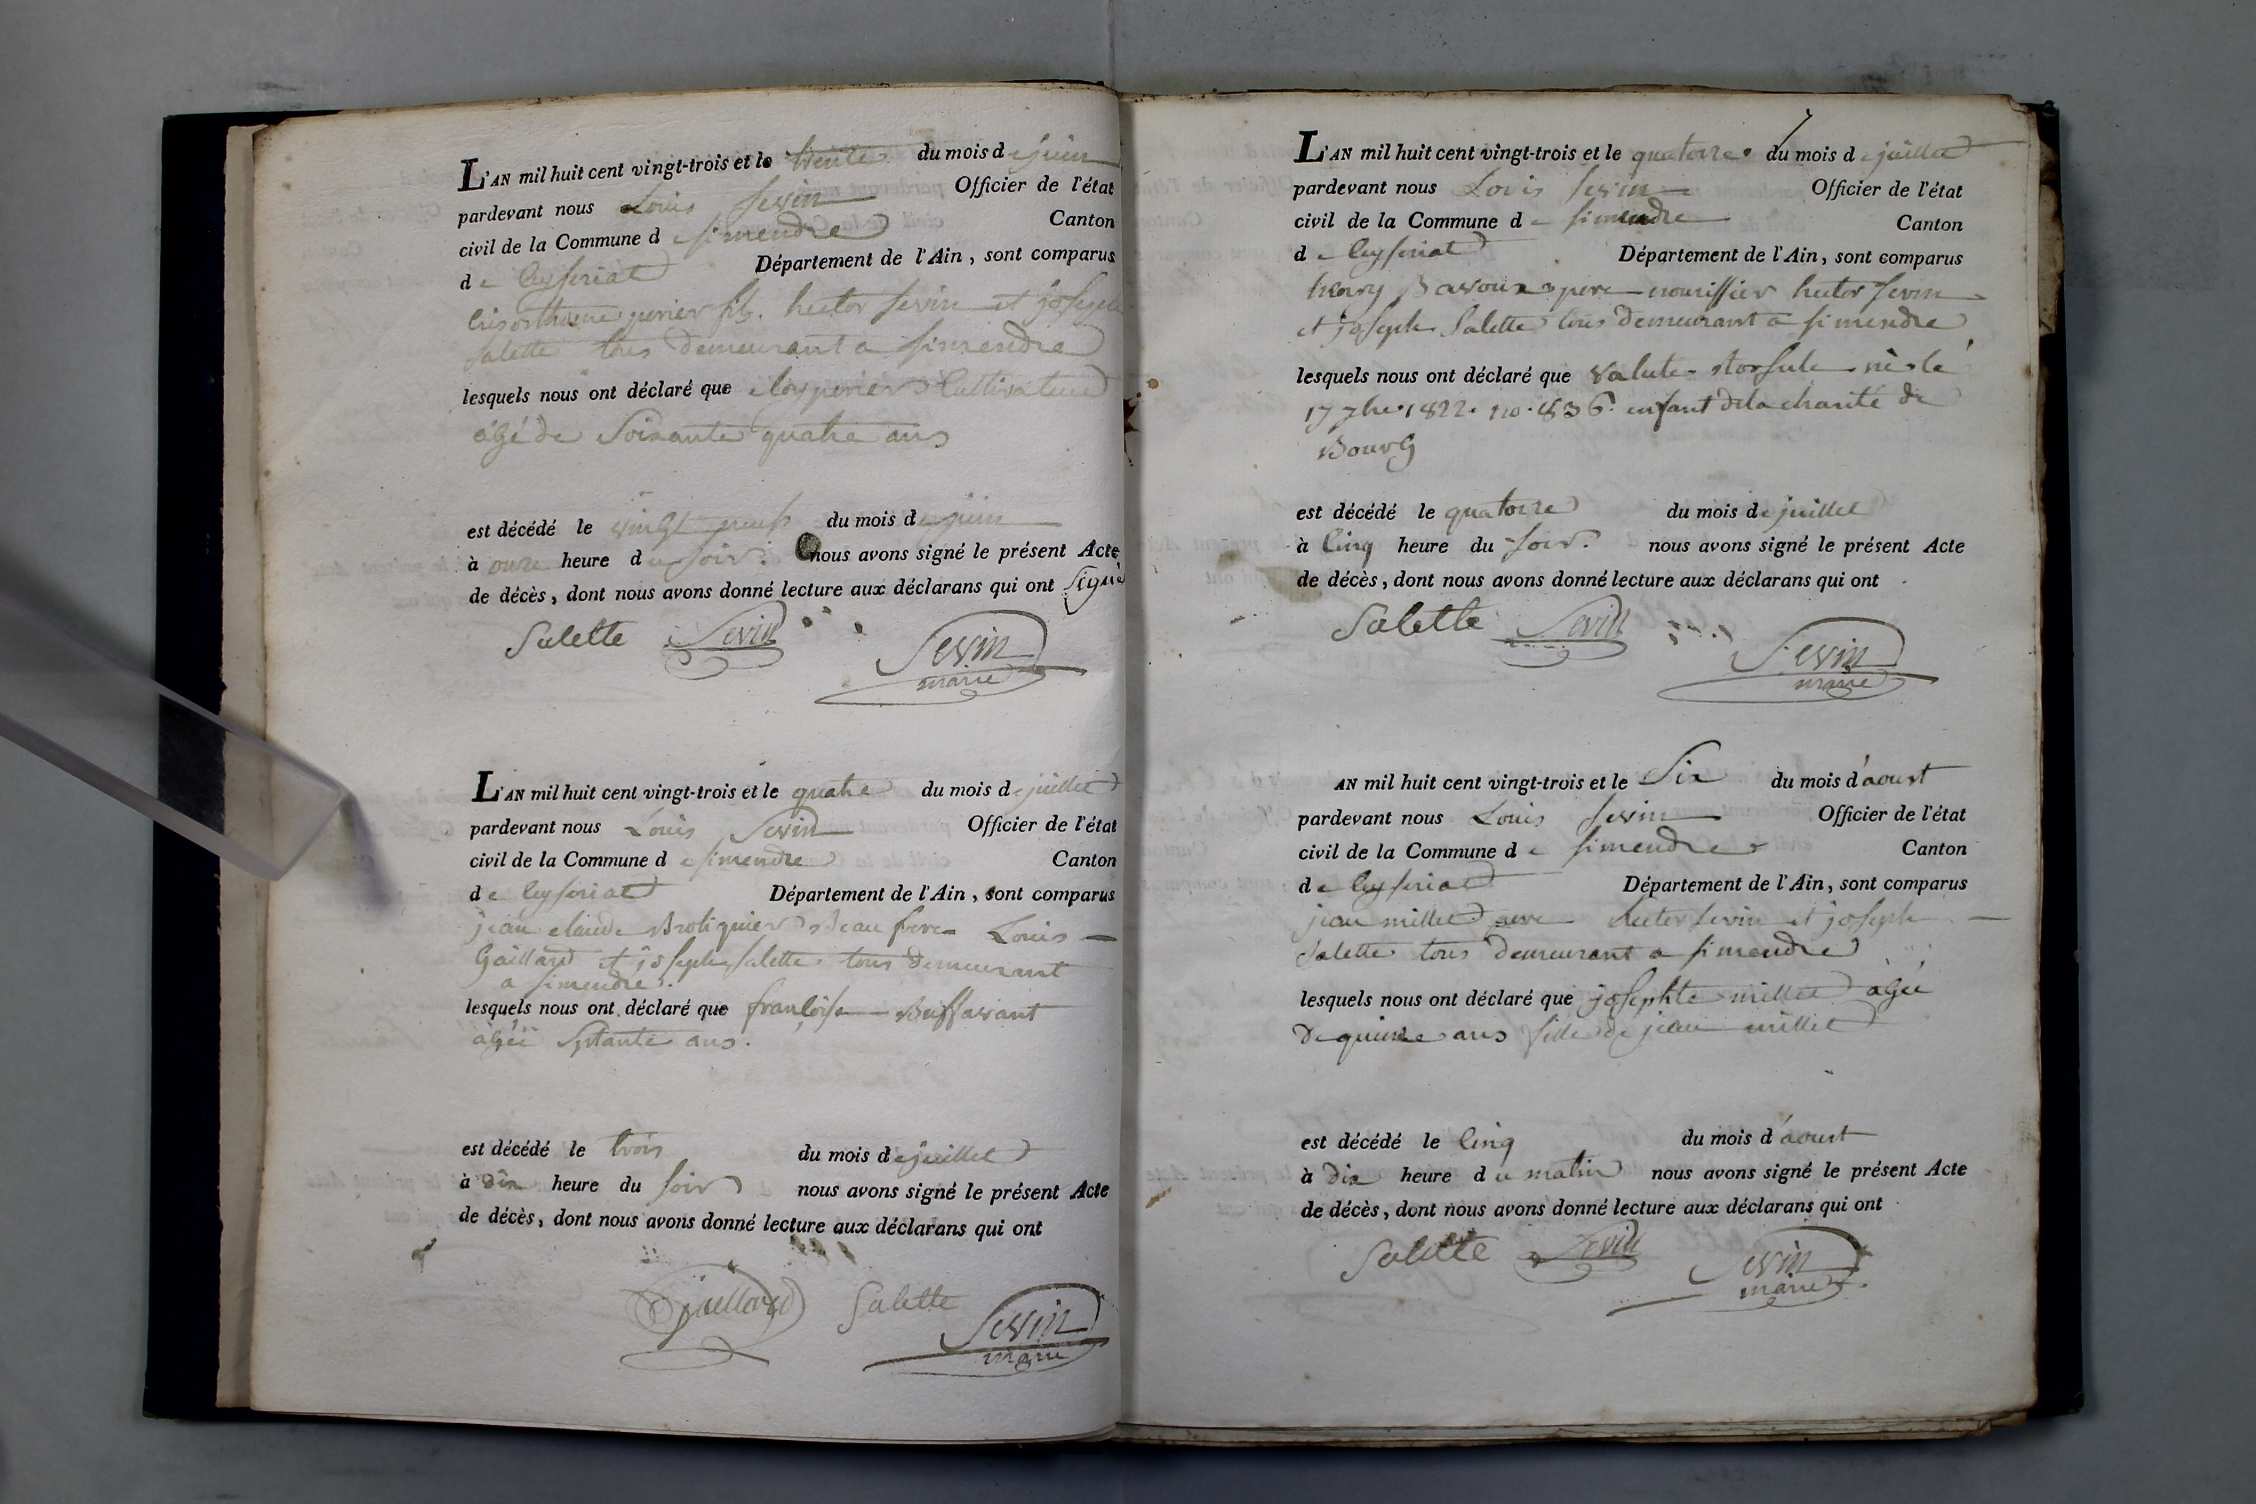 L'AN mil huit cent vingt-trois et le trente du mois de juin
pardevant nous Louis Sevin Officier de l'état
civil de la Commune de simendre Canton
de Ceyseriat Département de l'Ain, sont comparus
perier fils. hector Sevin et joseph
salette tous demeurant a simendre
lesquels nous ont déclaré que eloy perier Cultivateur
àgé de Soixante quatre ans
est décédé le vingt neuf du mois de juin
à onze heure du soir. nous avons signé le présent Acte
de décès, dont nous avons donné lecture aux déclarans qui ont signé
Salette Sevin Sevin
maire
L'AN mil huit cent vingt-trois et le quatre du mois de juillet
pardevant nous Louis Sevin Officier de l'état
civil de la Commune de simendre Canton
de Ceyseriat Département de l'Ain, sont comparus
jean claude Brotiquier Beau frere Louis
Gaillard et joseph salette tous demeurant
a simendre.
lesquels nous ont déclaré que françoise Buffavant
àgéé Sptante ans.
est décédé le trois du mois de juillet
à dix heure du soir nous avons signé le présent Acte
de décès, dont nous avons donné lecture aux déclarans qui ont
Gaillard Salette Sevin
maire
7
L'AN mil huit cent vingt-trois et le quatorze du mois de juillet
pardevant nous Louis Sevin Officier de l'état
civil de la Commune de simendre Canton
de Ceyseriat Département de l'Ain, sont comparus
henry Bavoux pere nourissier hector Sevin
et joseph Salette tous demeurant a simendre
lesquels nous ont déclaré que Valute storfule né le
17 7bre 1822. no. 836. enfant dela charité de
Bourg
est décédé le quatorze du mois de juillet
à Cinq heure du soir. nous avons signé le présent Acte
de décès, dont nous avons donné lecture aux déclarans qui ont
Salette Sevin Sevin
maire
AN mil huit cent vingt-trois et le Six du mois d'aoust
pardevant nous Louis Sevin Officier de l'état
civil de la Commune de simendre Canton
de Ceyseriat Département de l'Ain, sont comparus
jean millet pere hector Sevin et joseph
Salette tous demeurant a simendre
lesquels nous ont déclaré que josephte millet àgée
De quinze ans fille de jean millet
est décédé le Cinq du mois d'aoust
à Dix heure du matin nous avons signé le présent Acte
de décès, dont nous avons donné lecture aux déclarans qui ont
Salette Sevin Sevin
maire